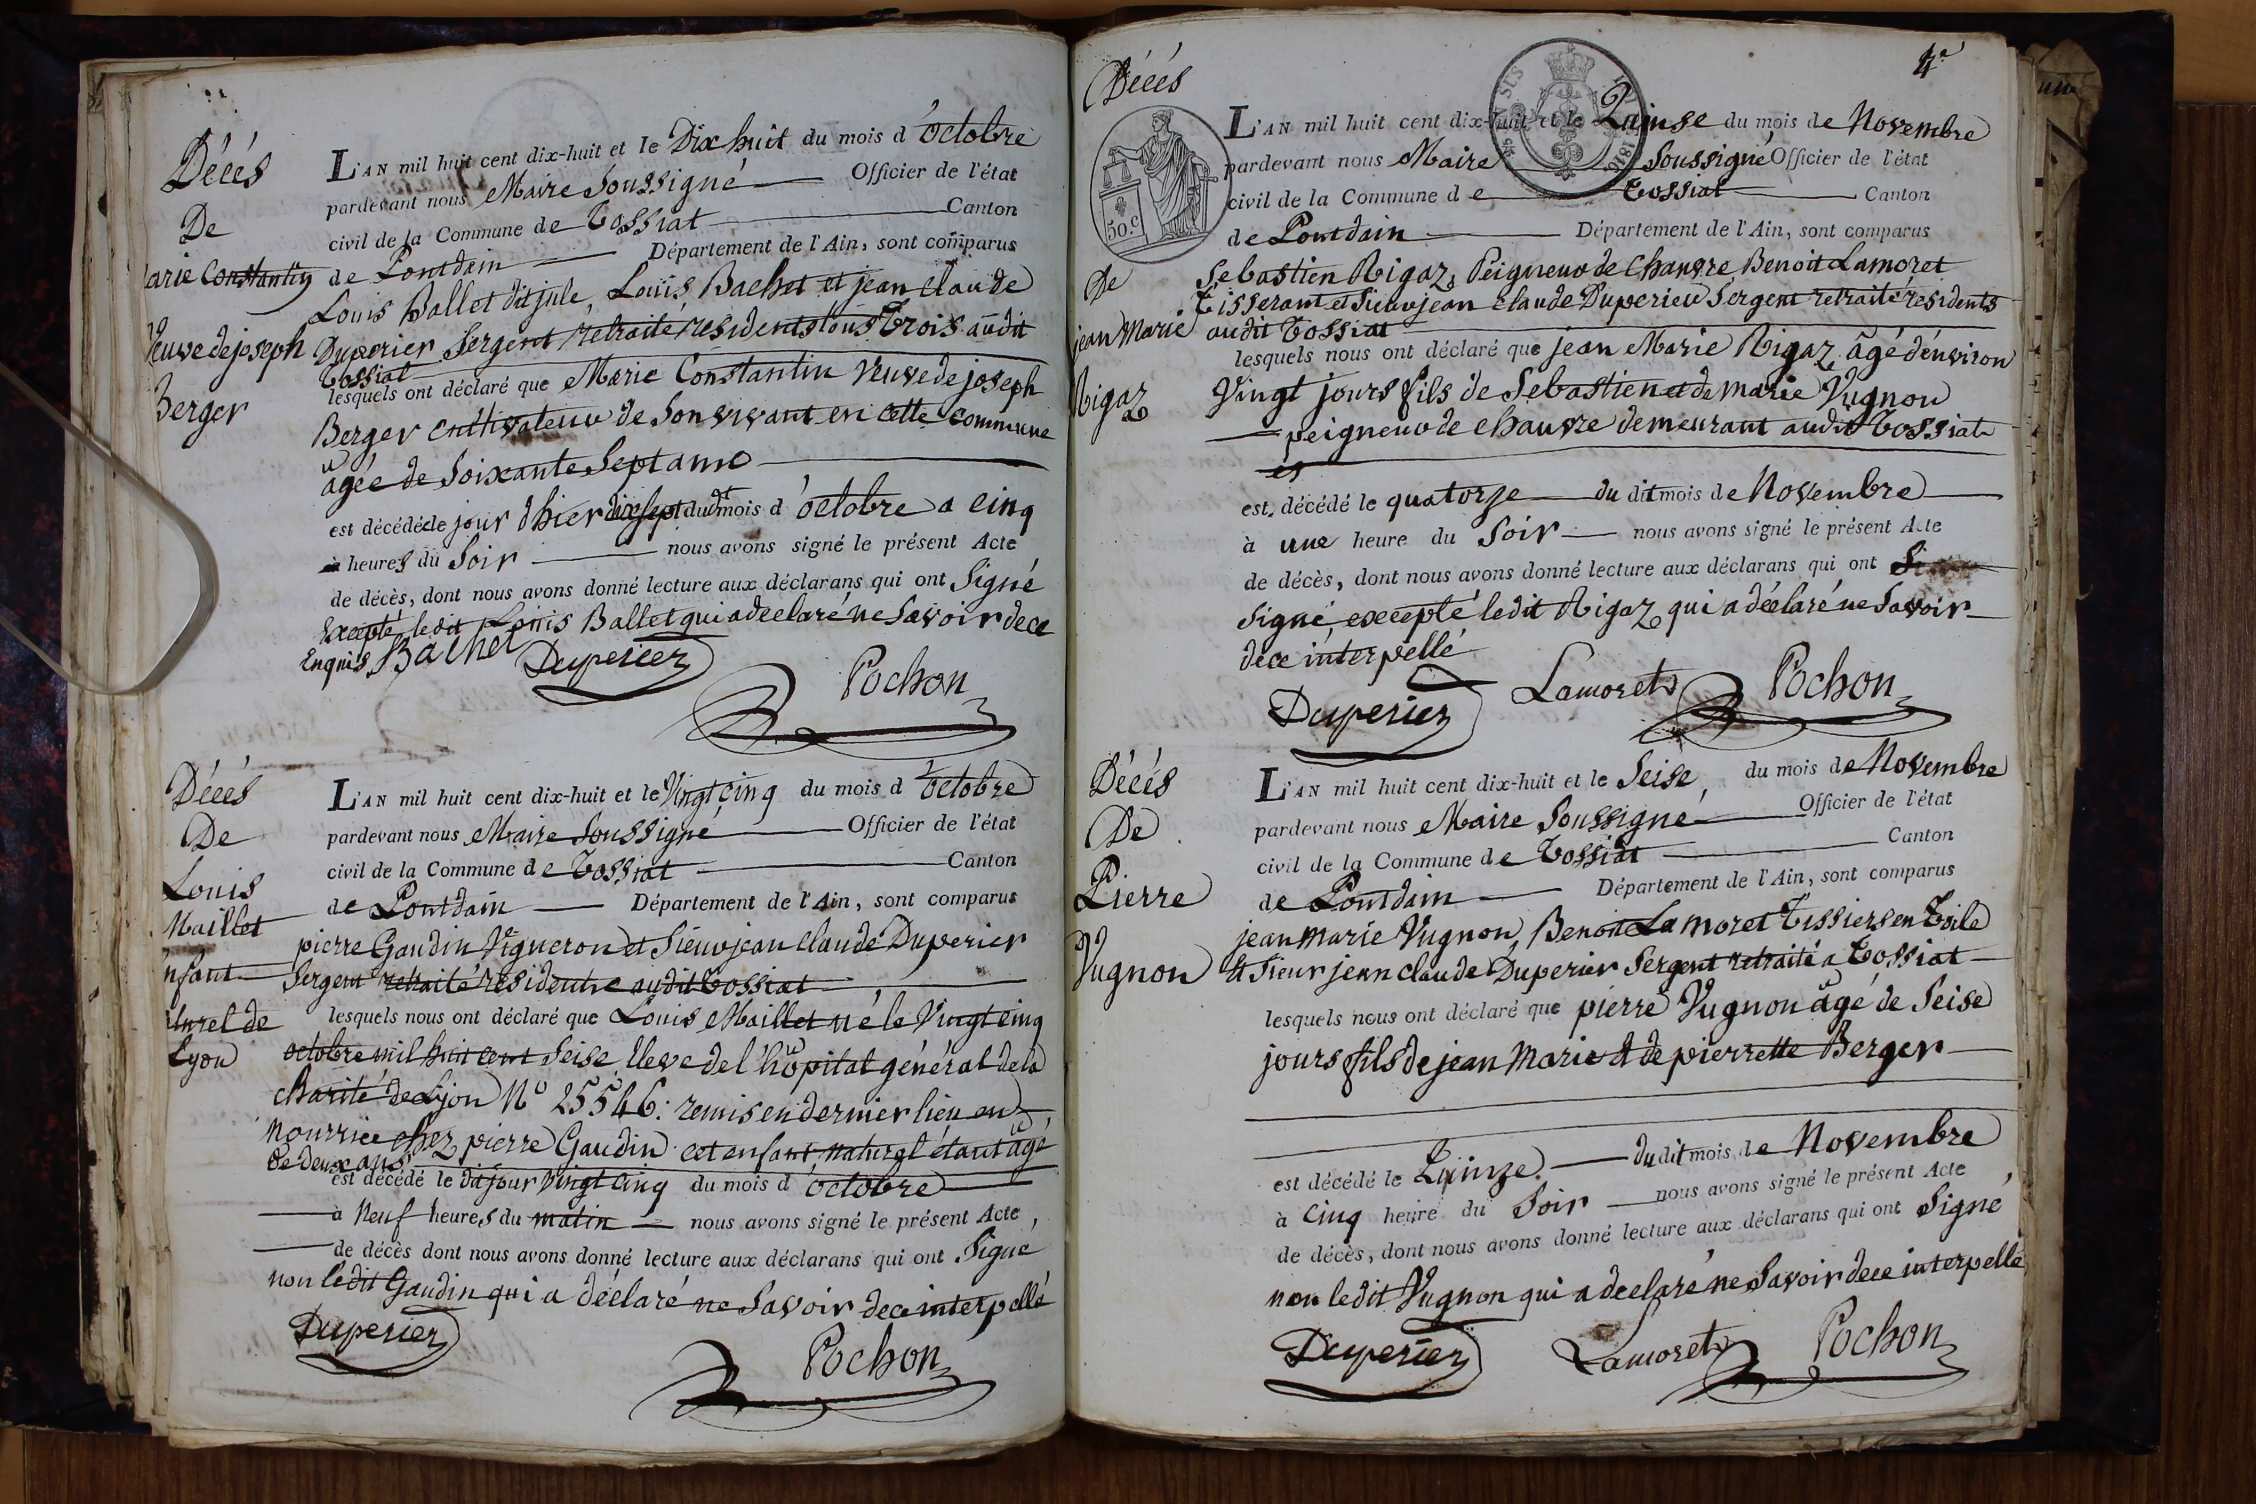 Décés
De
arie Constantin
Veuve de joseph
Berger
L'AN mil huit cent dix-huit et le Dix huit du mois d'octobre
pardevant nous Maire Soussigné Officier de l'état
civil de la Commune de Tossiat Canton
de Pontdain Département de l'Ain, sont comparus
Louis Ballet dit jule, Louis Bachet et jean Claude
Duperier Sergent retraité résidents tous Trois audit
Tossiat
lesquels ont déclaré que Marie Constantin Veuve de joseph
Berger cultivateur de Son vivant en cette commune
agée de Soixante Sept ans
est décédée le jour d'hier dix sept dudt mois d'octobre a cinq
heures du Soir nous avons signé le présent Acte
de décès, dont nous avons donné lecture aux déclarans qui ont Signé
Excepté ledit Louis Ballet qui a declaré ne Savoir de ce
Enquis Bachet Duperier
Pochon
Décés
De
Louis
Maillet
nfant
turel de
Lyon
L'AN mil huit cent dix-huit et le Vingt cinq du mois d'octobre
pardevant nous Maire Soussigné Officier de l'état
civil de la Commune de Tossiat Canton
de Pontdain Département de l'Ain, sont comparus
pierre Gaudin Vigneron et Sieur jean Claude Duperier
Sergent retraité résidents audit Tossiat
lesquels nous ont déclaré que Louis Maillet né le Vingt cinq
octobre mil huit cent Seise, Eleve de l'hôpital général de la
Charité de Lyon N° 25546: remis en dernier lieu en
Nourrice chez pierre Gaudin cet enfant naturel étant agé
de deux ans
est décédé le dit jour Vingt cinq du mois d'octobre
à Neuf heures du matin nous avons signé le présent Acte
de décès dont nous avons donné lecture aux déclarans qui ont Signé
non ledit Gaudin qui a déclaré ne Savoir de ce interpellé
Duperier
Pochon
4e
Décés
50.C
De
jean Marie
Rigaz
L'AN mil huit cent dix-huit et le Quinse du mois de Novembre
pardevant nous Maire Soussigné Officier de l'état
civil de la Commune de Tossiat Canton
de Pontdain Département de l'Ain, sont comparus
Sebastien Rigaz, Peigneur de Chanvre, Benoit Lamoret
Tisserant et Sieur jean Claude Duperier Sergent retraité résidents
audit Tossiat
lesquels nous ont déclaré que jean Marie Rigaz âgé d'environ
Vingt jours fils de Sebastien et de Marie Vugnon
peigneur de chanvre demeurant audit Tossiat
est décédé le quatorze du dit mois de Novembre
à une heure du Soir nous avons signé le présent Acte
de décès, dont nous avons donné lecture aux déclarans qui ont
Signé, excepté ledit Rigaz, qui a déclaré ne Savoir
de ce interpellé
Duperier Lamoret Pochon
Décés
De
Pierre
Vugnon
L'AN mil huit cent dix-huit et le Seise, du mois de Novembre
pardevant nous Maire Soussigné Officier de l'état
civil de la Commune de Tossiat Canton
de Pontdain Département de l'Ain, sont comparus
jean marie Vugnon, Benoit Lamoret Tissiers en Toile
et Sieur jean claude Duperier Sergent retraité a Tossiat
lesquels nous ont déclaré que pierre Vugnon âgé de Seise
jours fils de jean Marie et de pierrette Berger
est décédé le Quinze du dit mois de Novembre
à cinq heure du Soir nous avons signé le présent Acte
de décès, dont nous avons donné lecture aux déclarans qui ont Signé
non ledit Vugnon qui a declaré ne Savoir de ce interpellé
Duperier Lamoret Pochon